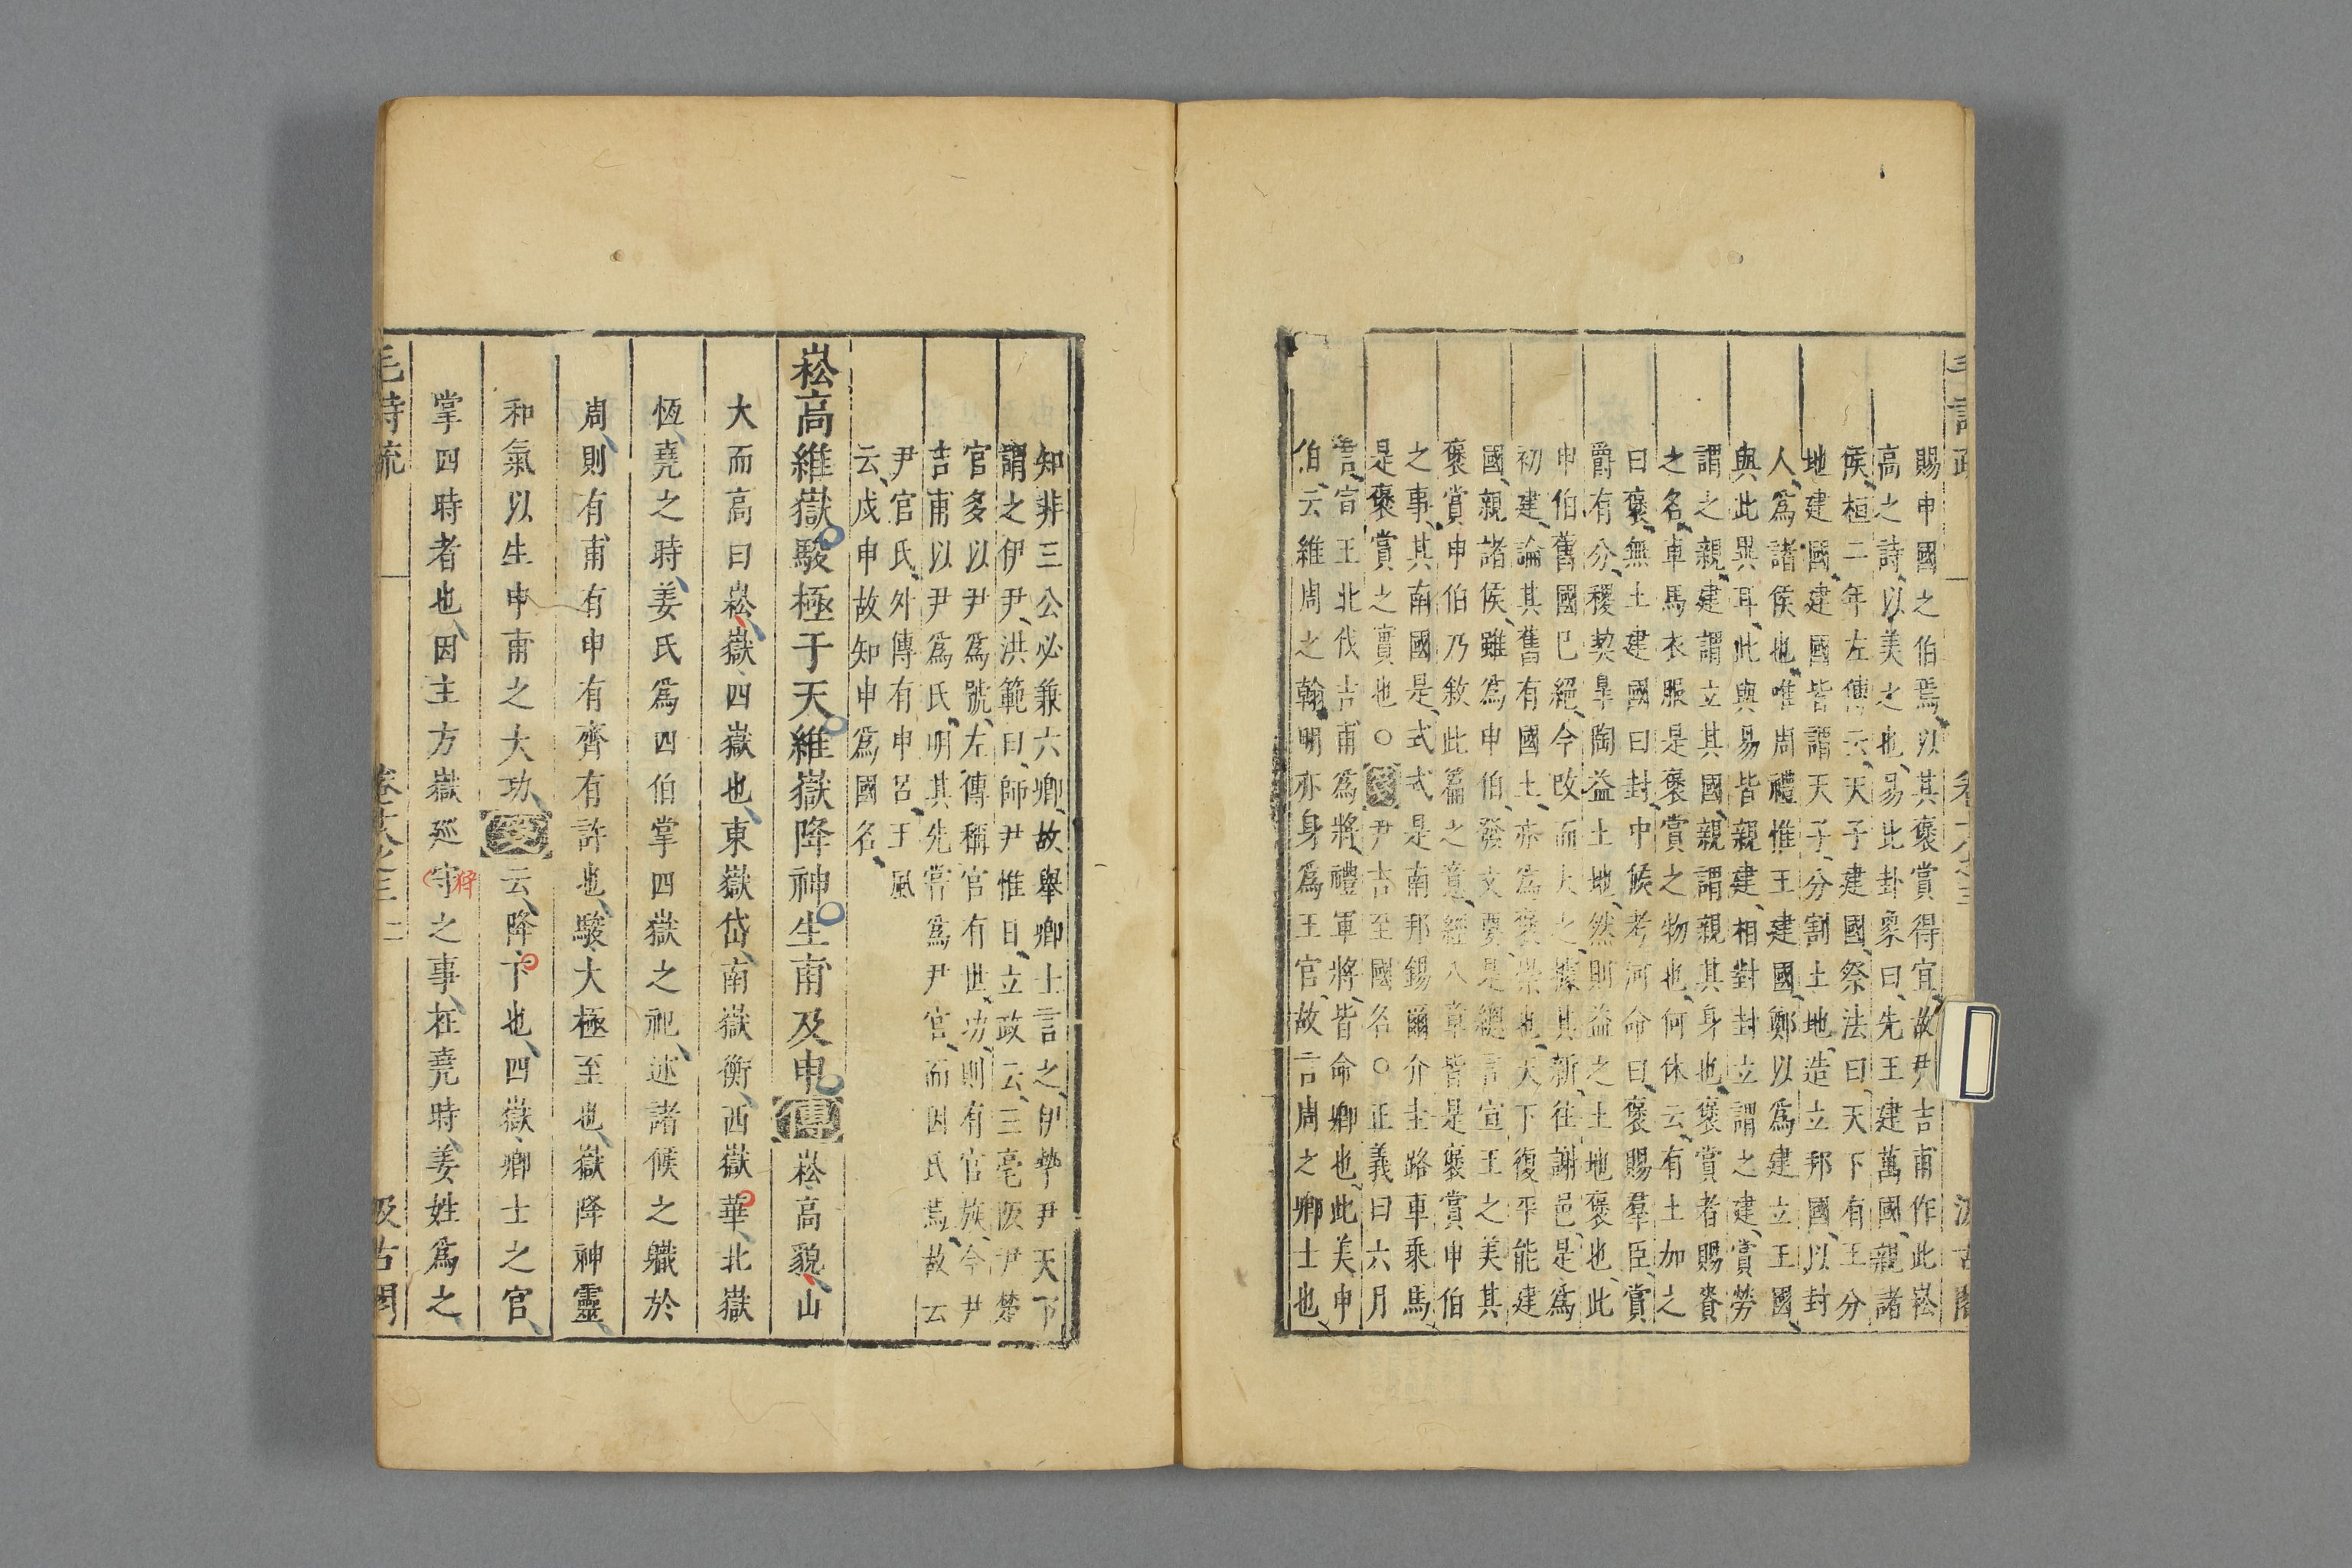 賜申國之伯焉以其褒賞得宜故尹吉甫作此崧
高之詩以美之也易比卦象曰先王建萬國親諸
侯桓二年左傳云天子建國祭法曰天下有王分
地建國建國皆謂天子分割土地造立邦國以封
人爲諸侯也唯周禮惟王建國鄭以爲建立王國
與此異耳此與易皆親建相對封立謂之建賞勞
謂之親建謂立其國親謂親其身也褒賞者賜賚
之名車馬衣服是褒賞之物也何休云有土加之
曰褒無土建國曰封中候考河命曰褒賜羣臣賞
爵有分稷契皐陶益土地然則益之土地褒也此
申伯舊國已絕今改而大之據其新往謝邑是爲
初建論其舊有國土亦爲褒崇也天下復平能建
國親諸侯雖爲申伯發文要是總言宣王之美其
褒賞申伯乃敘此篇之意經八章皆是褒賞申伯
之事其南國是式式是南邦錫爾介圭路車乘馬
是褒賞之實也○箋尹吉至國名○正義曰六月
言宣王北伐吉甫爲將禮軍將皆命卿也此美申
伯云維周之翰明亦身爲王官故言周之卿士也
知非三公必兼六卿故舉卿士言之伊摯尹天下
謂之伊尹洪範曰師尹惟日立政云三亳阪尹楚
官多以尹爲號左傳稱官有世功則有官族今尹
吉甫以尹爲氏明其先嘗爲尹官而因氏焉故云
尹官氏外傳有申呂王風
云戍申故知申爲國名
崧高維嶽駿極于天維嶽降神生甫及申傳崧高貌山
大而高曰崧嶽四嶽也東嶽岱南嶽衡西嶽華北嶽
恆堯之時姜氏爲四伯掌四嶽之祀述諸候之職於
周則有甫有申有齊有許也駿大極至也嶽降神靈
和氣以生申甫之大功箋云降下也四嶽卿士之官
掌四時者也因主方嶽巡守之事在堯時姜姓爲之
狩
毛詩疏
卷十八之三
二
汲古閣